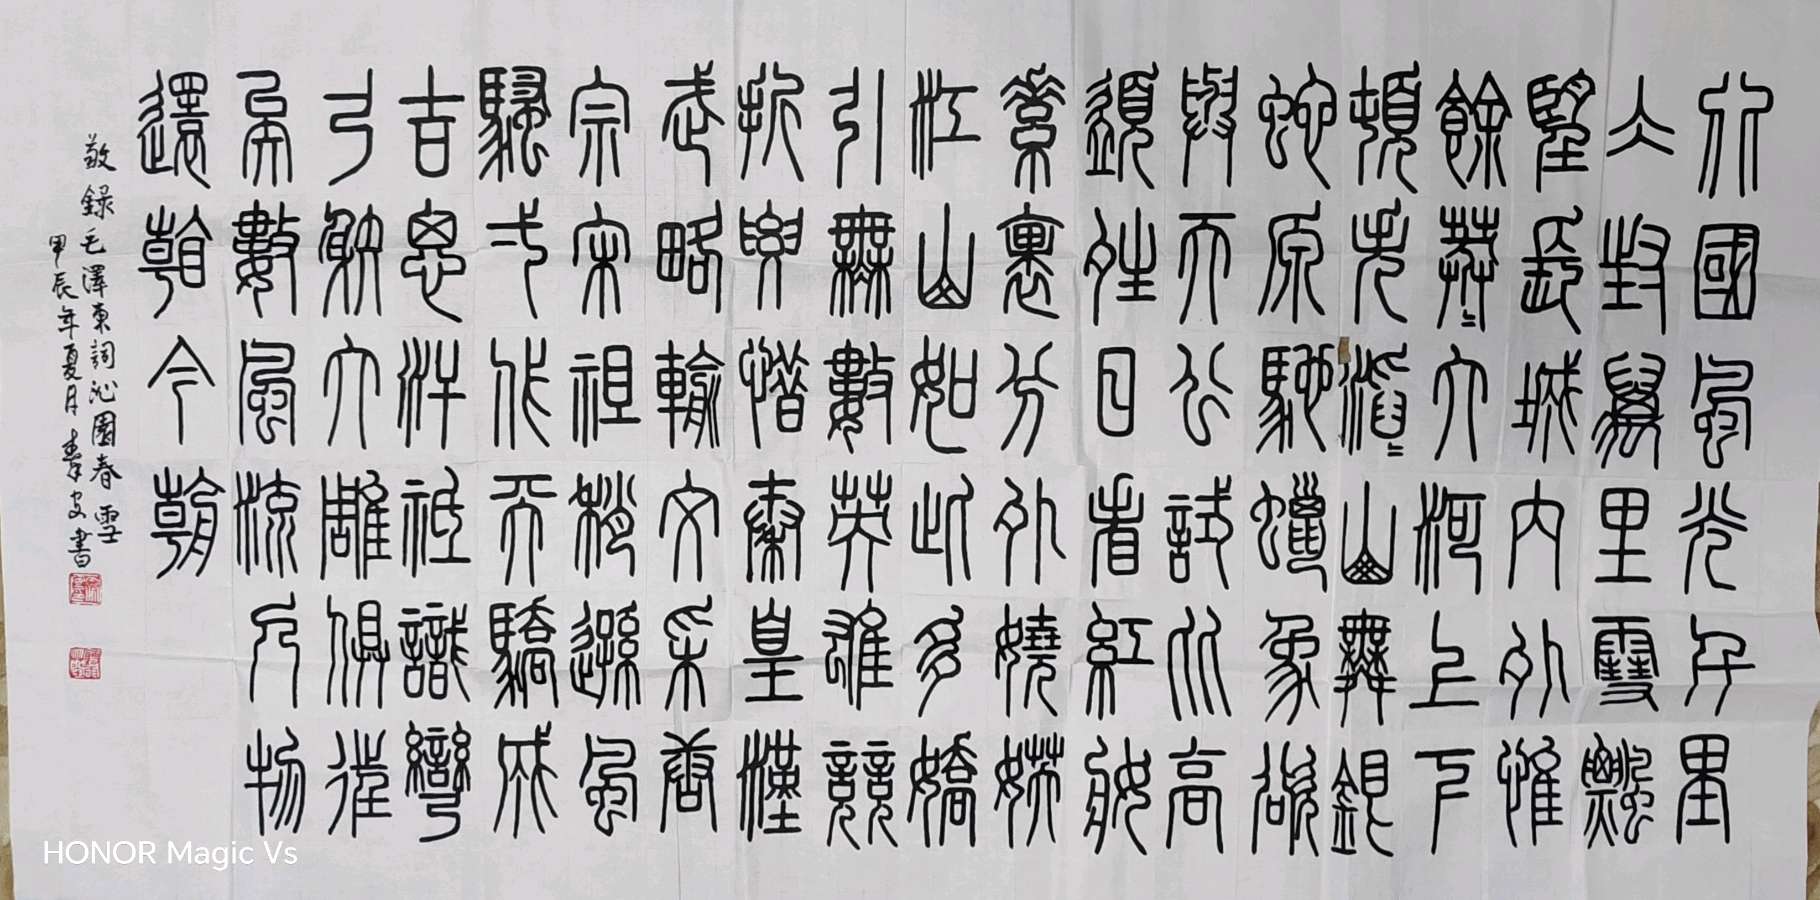 北國風光千里
冰封萬里雪飄
望長城內外惟
餘莽〻大河上下
頓失滔〻山舞銀
蛇原馳蠟象欲
與天公試比高
須晴日看紅妝
素裹分外嬈妖
江山如此多嬌
引無數英雄競
折腰惜秦皇漢
武略輸文采唐
宗宋祖稍遜風
騷弌代天驕成
吉思汗祗識彎
弓射大雕俱往
矣數風流人物
還看今朝
敬錄毛澤東詞沁園春雪
甲辰年夏月 書
HONOR Magic Vs